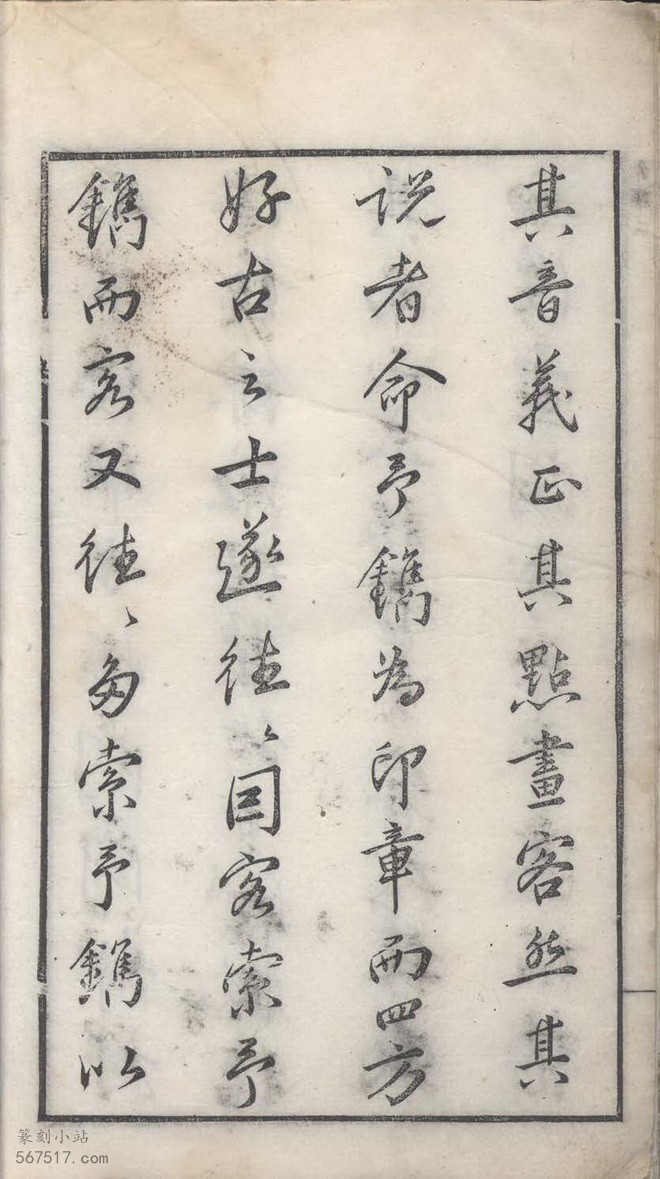 其音義正其點畫客然其
說者命予鐫為印章而四方
好古之士遂往〻因客索予
鐫而客又往〻為索予鐫以
篆刻小站
567517.com